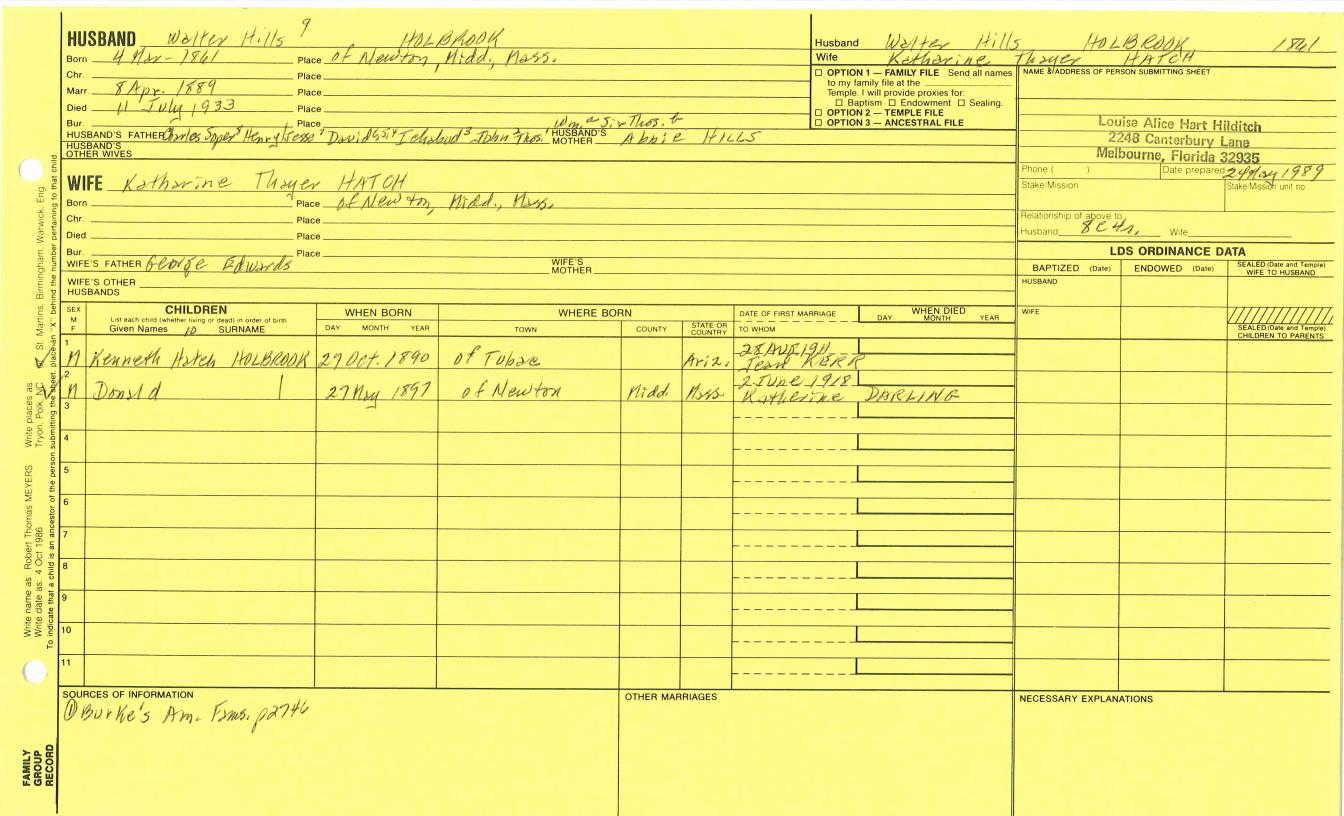 9
HUSBAND Walter Hills HOLBROOK
Born 4 Mar- 1861 Place of Newton, Midd., Mass.
Chr. Place
Marr 8 Apr. 1889 Place
Died 11 July 1933 Place
Bur. Place Wm. a Sir Thos. b
HUSBAND'S FATHER Charles Soper Henry Jesse David Ichabod 3 John 2 Thos. 1 HUSBAND'S MOTHER Abbie HILLS
HUSBAND'S OTHER WIVES
WIFE Katharine Thayer HATCH
Born Place of Newton, Midd., Mass.
Chr. Place
Died Place
Bur. Place
WIFE'S FATHER George Edwards WIFE'S MOTHER
WIFE'S OTHER HUSBANDS
Husband Walter Hills HOLBROOK 1861
Wife Katharine Thayer HATCH
☐ OPTION 1 — FAMILY FILE Send all names
to my family file at the
Temple. I will provide proxies for:
☐ Baptism ☐ Endowment ☐ Sealing.
☐ OPTION 2 — TEMPLE FILE
☐ OPTION 3 — ANCESTRAL FILE
NAME & ADDRESS OF PERSON SUBMITTING SHEET
Louise Alice Hart Hilditch
2248 Canterbury Lane
Melbourne, Florida 32935
Phone ( ) Date prepared 24 May 1989
Stake/Mission Stake/Mission unit no
Relationship of above to
Husband 8C4r. Wife
LDS ORDINANCE DATA
BAPTIZED (Date) ENDOWED (Date) SEALED (Date and Temple) WIFE TO HUSBAND
HUSBAND
WIFE
SEALED (Date and Temple) CHILDREN TO PARENTS
SEX M F
CHILDREN
List each child (whether living or dead) in order of birth
Given Names 10 SURNAME
WHEN BORN
DAY MONTH YEAR
WHERE BORN
TOWN COUNTY STATE OR COUNTRY
DATE OF FIRST MARRIAGE
TO WHOM
WHEN DIED
DAY MONTH YEAR
1 M Kenneth Hatch HOLBROOK 27 Oct. 1890 of Tubac Ariz. 28 AUG 1911 Jean KERR
2 M Donald 27 May 1897 of Newton Midd. Mass. 2 June 1918 Katherine DARLING
3
4
5
6
7
8
9
10
11
SOURCES OF INFORMATION
① Burke's Am. Fams. p2746
OTHER MARRIAGES
NECESSARY EXPLANATIONS
Write name as: Robert Thomas MEYERS
Write date as: 4 Oct 1986
Write places as: Tryon, Polk, NC
St. Martins, Birmingham, Warwick, Eng.
To indicate that a child is an ancestor of the person submitting the sheet, place an "X" behind the number pertaining to that child.
FAMILY
GROUP
RECORD